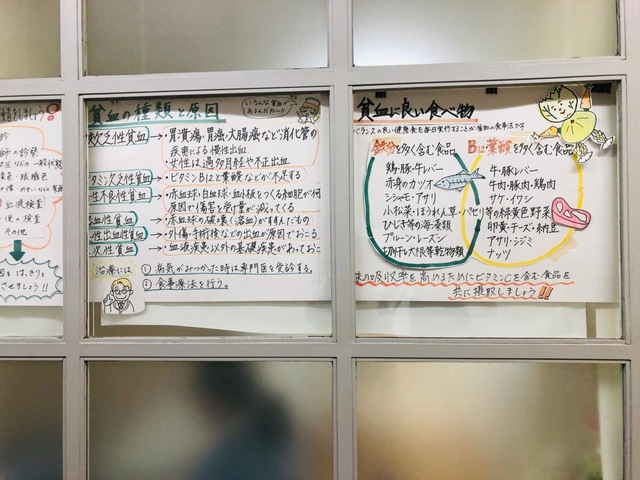 診
血液検査
便の検査
その他
させましょう!
貧血の種類と原因
いろんな貧血が
あるんだね〜
欠乏性貧血→・胃潰瘍・胃癌・大腸癌など消化管の
疾患による慢性出血
・女性は過多月経や不正出血
ビタミン欠乏性貧血→・ビタミンB12と葉酸などが不足する
生不良性貧血→・赤血球・白血球・血小板をつくる細胞が何
原因で傷害を受け量が減ってくる
溶血性貧血→・赤血球の崩壊(溶血)が亢進したもの
性出血性貧血→・外傷・手術後などの出血が原因でおこる
次性貧血→・血液疾患以外の基礎疾患があっておこ
治療には
① 病気がみつかった時は専門医を受診する。
② 食事療法を行う。
貧血に良い食べ物
バランスの良い健康食を毎日実行することが貧血の食事法です
鉄分を多く含む食品
鶏・豚・牛レバー
赤身のカツオ
シシャモ・アサリ
小松菜・ほうれん草・パセリ
ひじき等の海藻類
プルーン・レーズン
切り干し大根等乾物類
B12・葉酸を多く含む食品
牛・豚レバー
牛肉・豚肉・鶏肉
サケ・イワシ
等の緑黄色野菜
卵黄・チーズ・納豆
アサリ・シジミ
ナッツ
の吸収率を高めるためにビタミンCを含む食品を
共に摂取しましょう!!